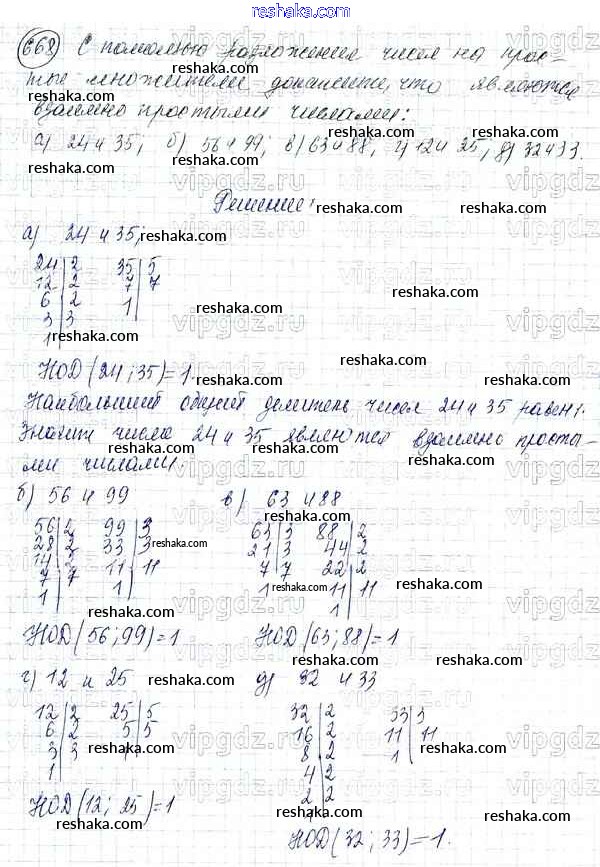 reshaka.com
668 С помощью разложения чисел на прос-
тые множители докажите, что являются
взаимно простыми числами:
а) 24 и 35; б) 56 и 99; в) 63 и 88; г) 12 и 25; д) 32 и 33.
Решение:
а) 24 и 35
24|2 35|5
12|2 7|7
6|2 1|
3|3
1|
НОД(24;35)=1.
Наибольший общий делитель чисел 24 и 35 равен 1.
Значит числа 24 и 35 являются взаимно просты-
ми числами.
б) 56 и 99 в) 63 и 88
56|2 99|3 63|3 88|2
28|2 33|3 21|3 44|2
14|2 11|11 7|7 22|2
7|7 1| 1| 11|11
1| 1|
НОД(56;99)=1 НОД(63;88)=1
г) 12 и 25 д) 32 и 33
12|2 25|5 32|2 33|3
6|2 5|5 16|2 11|11
3|3 1| 8|2 1|
1| 4|2
2|2
НОД(12;25)=1
НОД(32;33)=1.